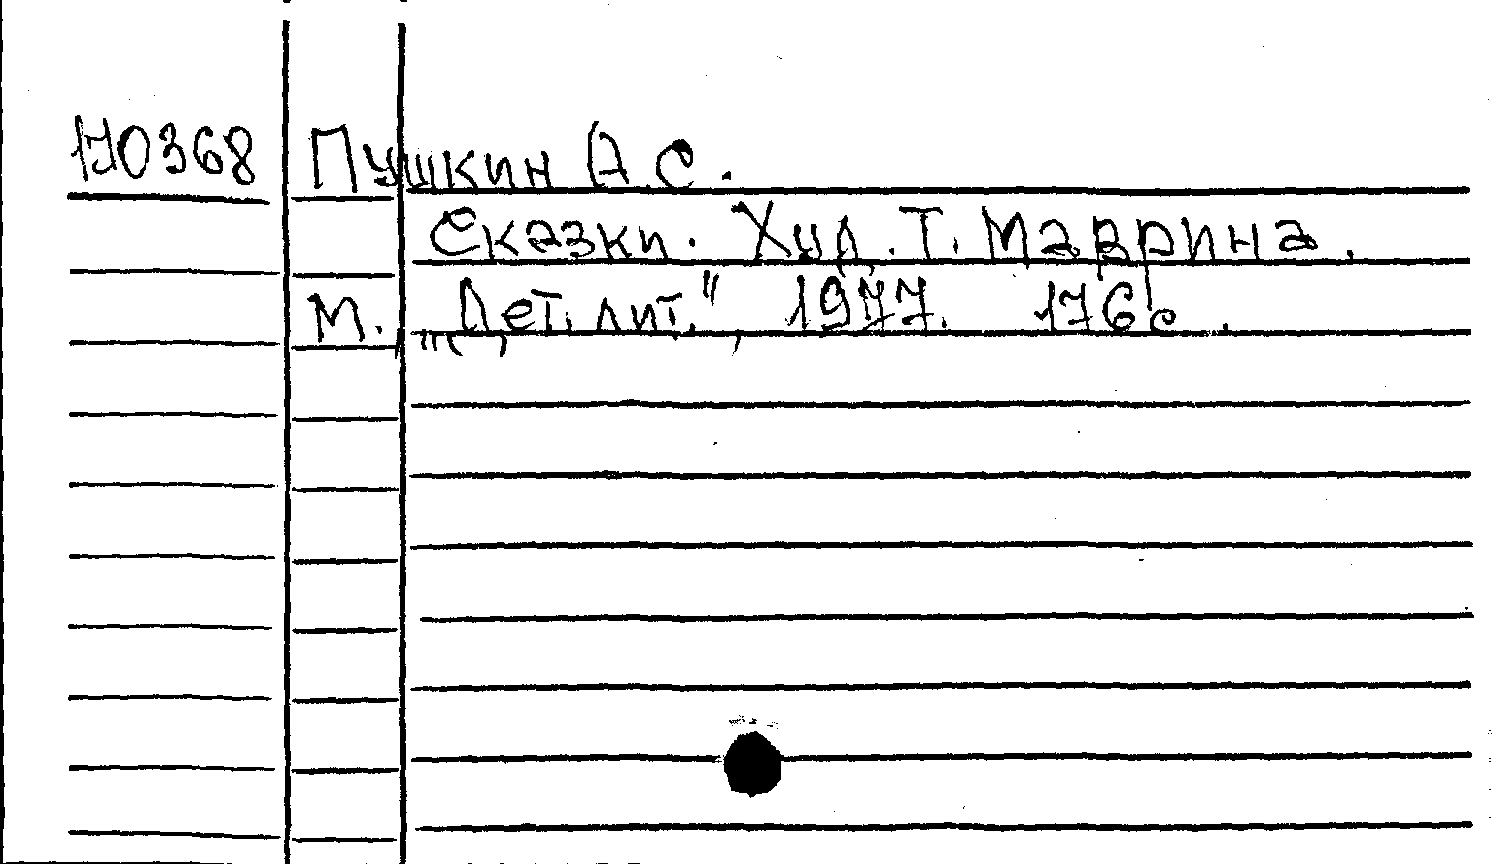 170368 Пушкин А.С.
Сказки. Худ. Т. Маврина.
М., „Дет. лит.", 1977. 176 с.